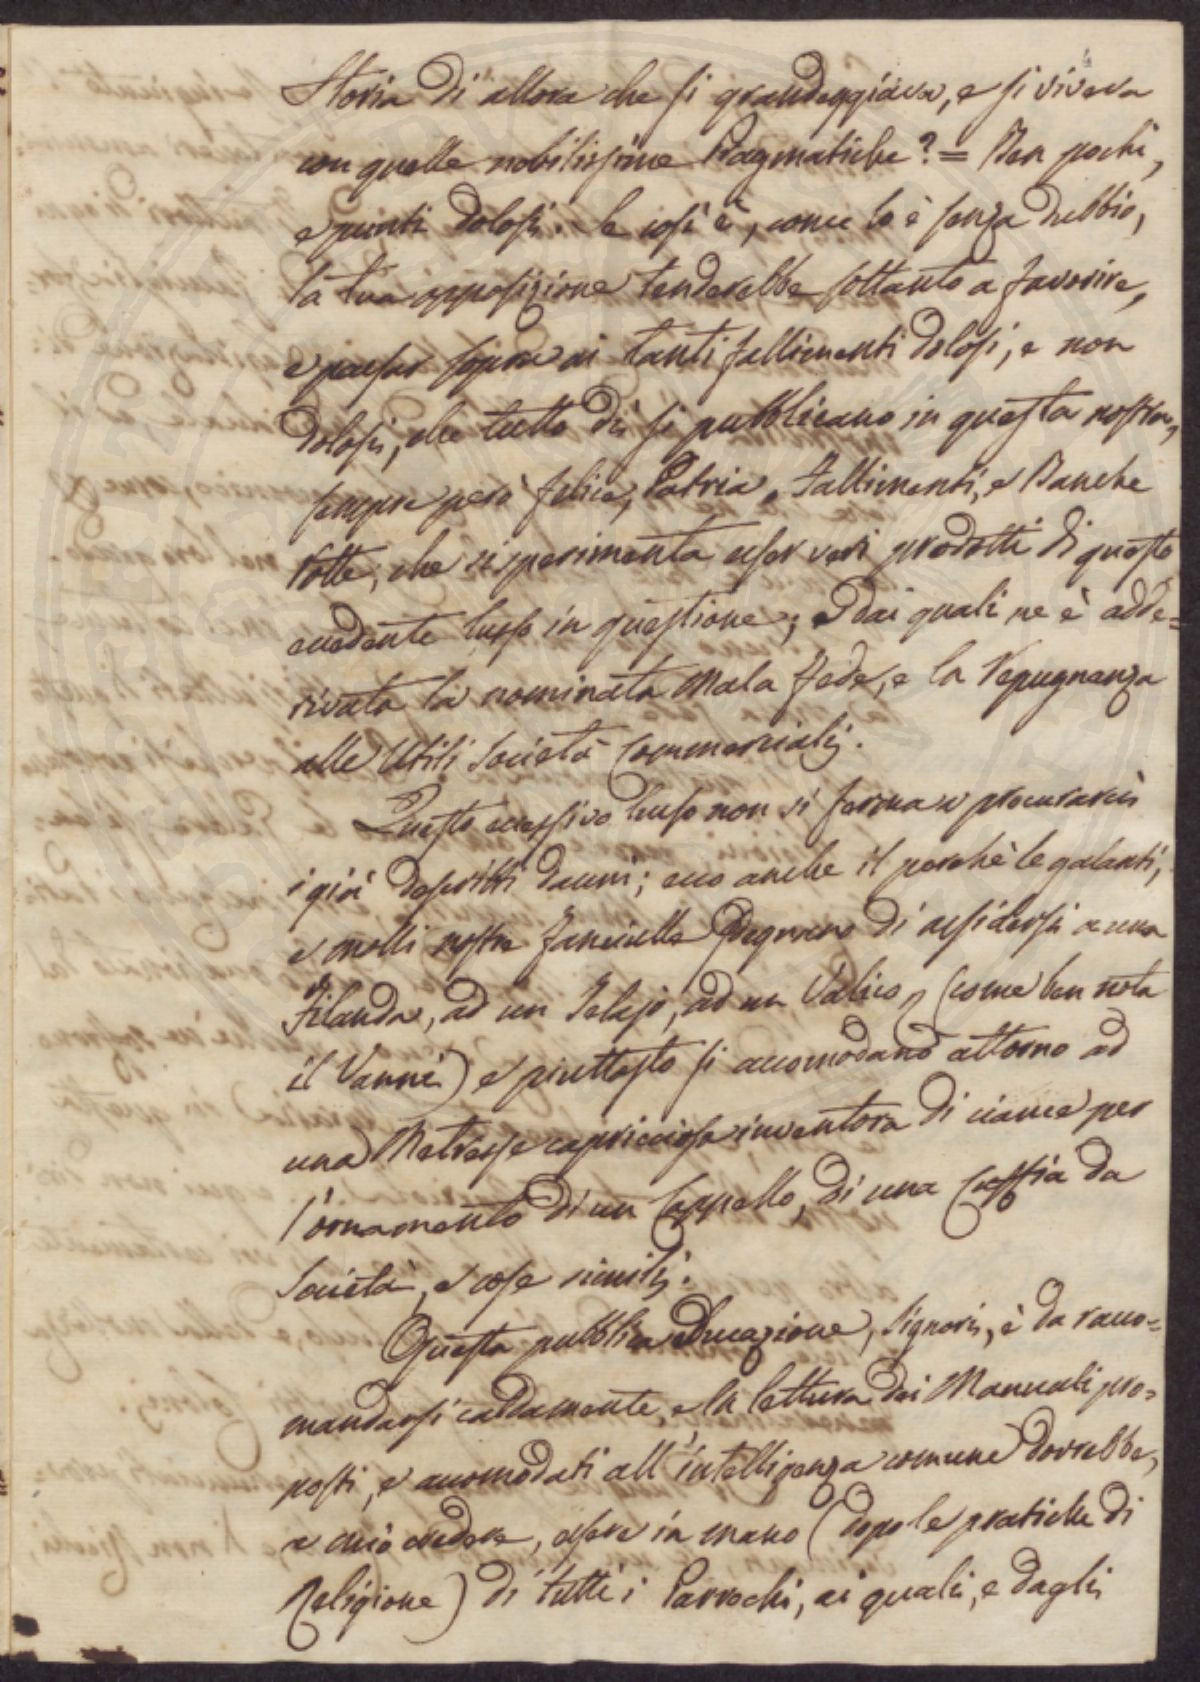 Storia di allora che si grandeggiava, e si viveva
con quelle nobilissime Pragmatiche? = Ben pochi,
e punti dolosi. Se così è, come lo è senza dubbio,
la tua opposizione tenderebbe soltanto a favorire,
e passar sopra ai tanti fallimenti dolosi, e non
dolosi, che tutto dì si pubblicano in questa nostra,
sempre però felice, Patria. Fallimenti, e Banche
rotte, che si sperimenta esser veri prodotti di questo
eccedente lusso in questione; e dai quali ne è adde=
rivata la nominata Mala fede, e la repugnanza
alle Utili Società Commerciali.
Questo eccessivo lusso non si ferma a procurarci
i già descritti danni; ecco anche il perchè le galanti,
e molli nostre fanciulle sdegnano di assidersi a una
Filanda, ad un Telajo, ad un Valico, (come ben nota
il Vanni) e piuttosto si accomodano attorno ad
una Metresse capricciosa inventora di ciance per
l'ornamento di un Cappello, di una Cuffia da
Società, e cose simili.
Questa pubblica educazione, Signori, è da racco=
mandarsi caldamente, e la lettura dei Manuali pro=
posti, e accomodati all'intelligenza comune dovrebbe,
a mio credere, essere in mano (dopo le pratiche di
Religione) di tutti i Parrochi, ai quali, e dagli